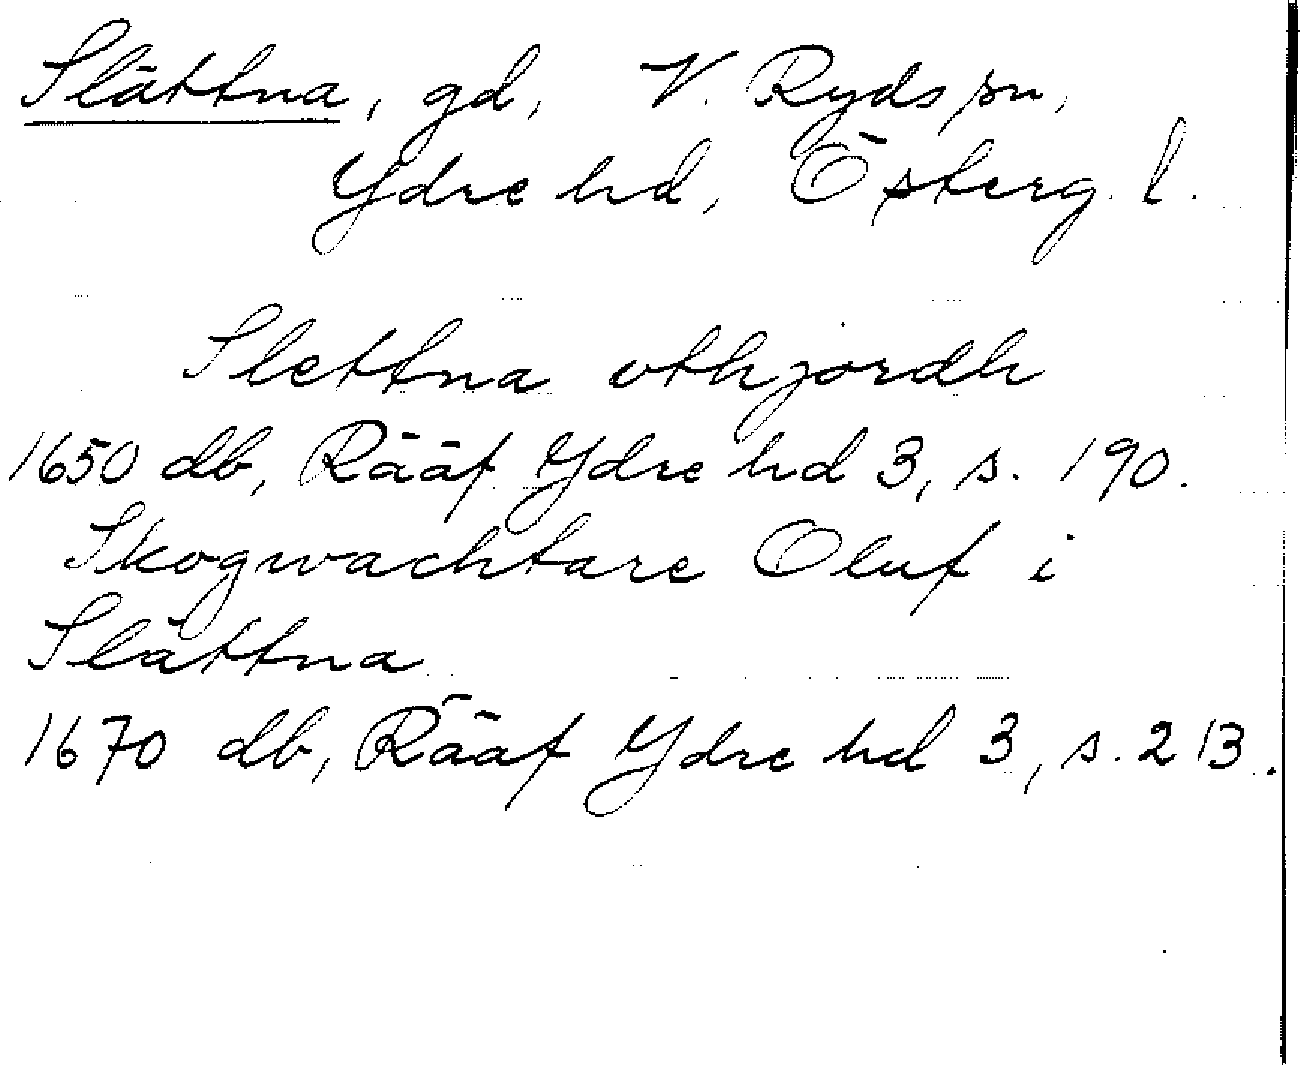 Slättna, gd, V. Ryds sn,
Ydre hd, Österg. l.
Slettna vthjordh
1650 db, Rääf Ydre hd 3, s. 190.
Skogwachtare Oluf i
Slättna
1670 db, Rääf Ydre hd 3, s. 213.